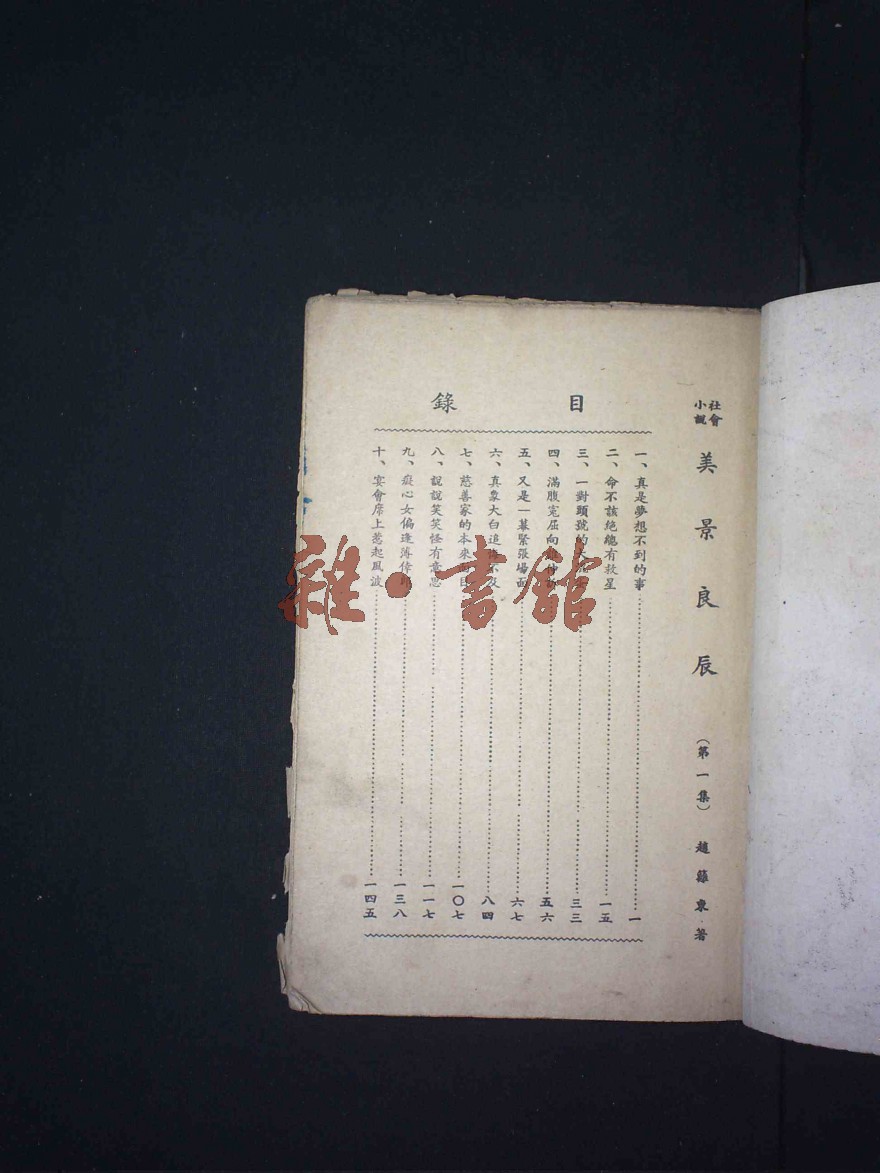 社會小說
美景良辰
（第一集）
趙籙東著
目錄
一、真是夢想不到的事 一
二、命不該絕總有救星 一五
三、一對頭號的 三三
四、滿腹寃屈向 五六
五、又是一幕緊張場面 六七
六、真象大白追 八四
七、慈善家的本來 目 一〇七
八、說說笑笑怪有意思 一一七
九、癡心女偏逢薄倖 一三八
十、宴會席上惹起風波 一四五
雜·書館